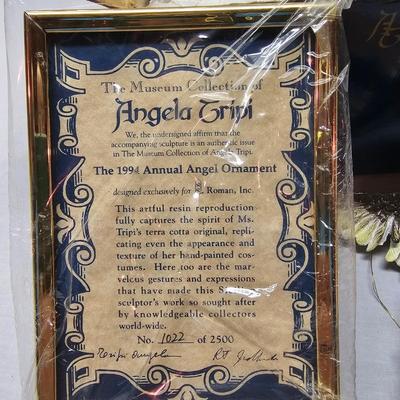 The Museum Collection of
Angela Tripi
We, the undersigned affirm that the
accompanying sculpture is an authentic issue
in The Museum Collection of Angela Tripi.
The 1994 Annual Angel Ornament
designed exclusively for Roman, Inc.
This artful resin reproduction
fully captures the spirit of Ms.
Tripi's terra cotta original, repli-
cating even the appearance and
texture of her hand-painted cos-
tumes. Here too are the mar-
velous gestures and expressions
that have made this
sculptor's work so sought after
by knowledgeable collectors
world-wide.
No. 1022 of 2500